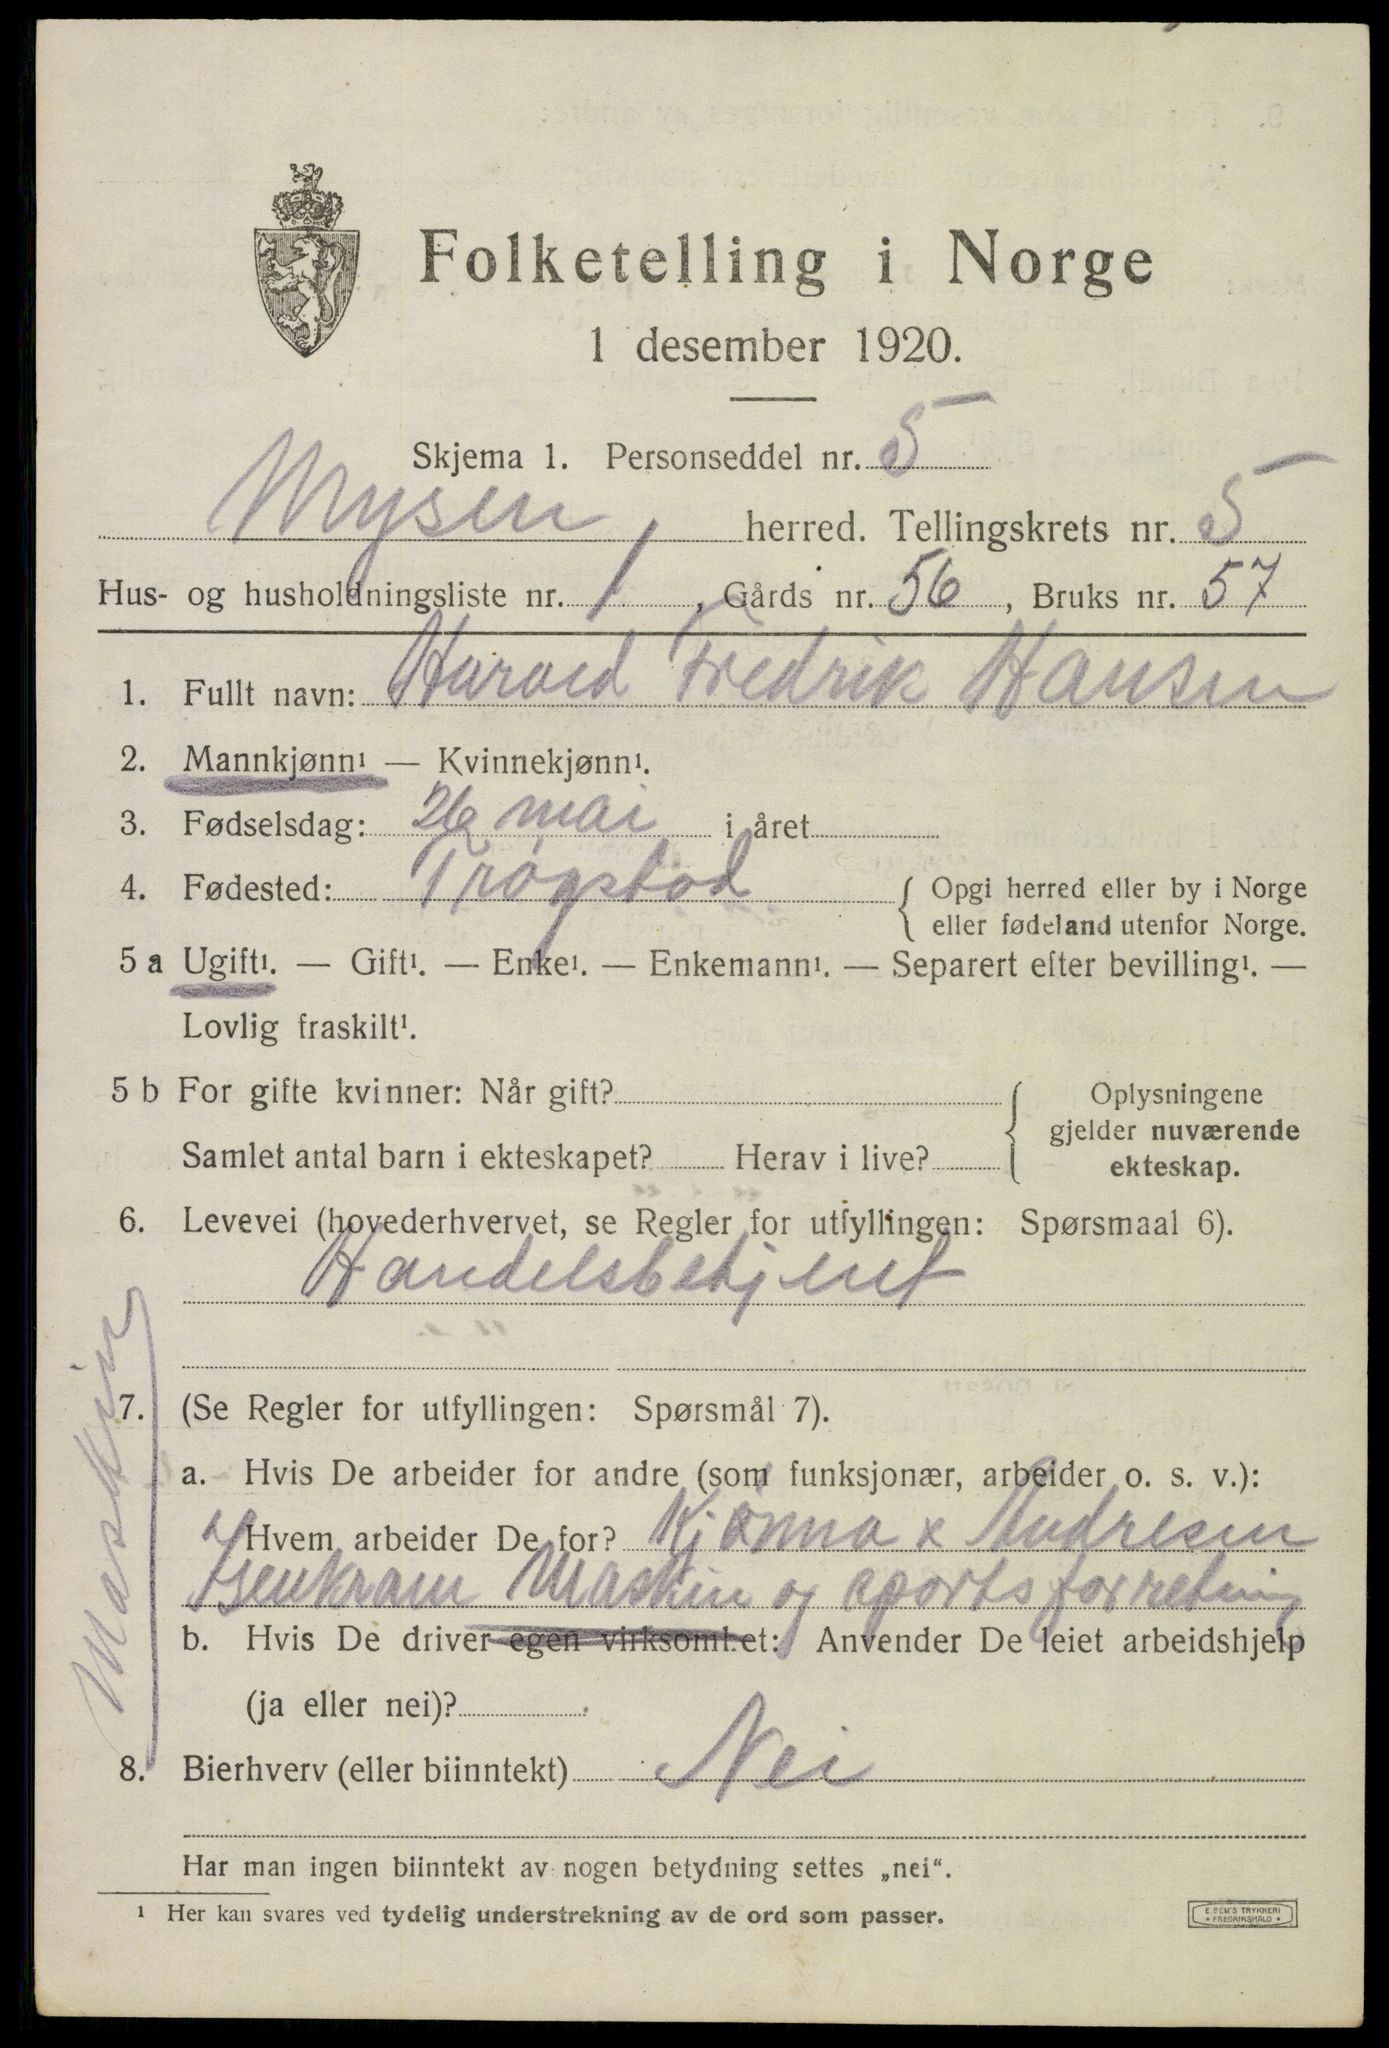 Folketelling i Norge
1 desember 1920.
Skjema 1. Personseddel nr. 5
Mysen herred. Tellingskrets nr. 5
Hus- og husholdningsliste nr. 1, Gårds nr. 56, Bruks nr. 57
1. Fullt navn: Harald Fredrik Hansen
2. Mannkjønn¹ — Kvinnekjønn¹.
3. Fødselsdag: 26 mai i året
4. Fødested: Trøgstad { Opgi herred eller by i Norge
eller fødeland utenfor Norge.
5 a Ugift¹. — Gift¹. — Enke¹. — Enkemann¹. — Separert efter bevilling¹. —
Lovlig fraskilt¹.
5 b For gifte kvinner: Når gift? { Oplysningene
gjelder nuværende
Samlet antal barn i ekteskapet? Herav i live? ekteskap.
6. Levevei (hovederhvervet, se Regler for utfyllingen: Spørsmaal 6).
Handelsbetjent
Maskin
7. (Se Regler for utfyllingen: Spørsmål 7).
a. Hvis De arbeider for andre (som funksjonær, arbeider o. s. v.):
Hvem arbeider De for? Andresen
Isenkram Maskin og sportsforretning
b. Hvis De driver egen virksomhet: Anvender De leiet arbeidshjelp
(ja eller nei)?
8. Bierhverv (eller biinntekt) Nei
Har man ingen biinntekt av nogen betydning settes „nei“.
¹ Her kan svares ved tydelig understrekning av de ord som passer.
E. SEM'S TRYKKERI
• FREDRIKSHALD •